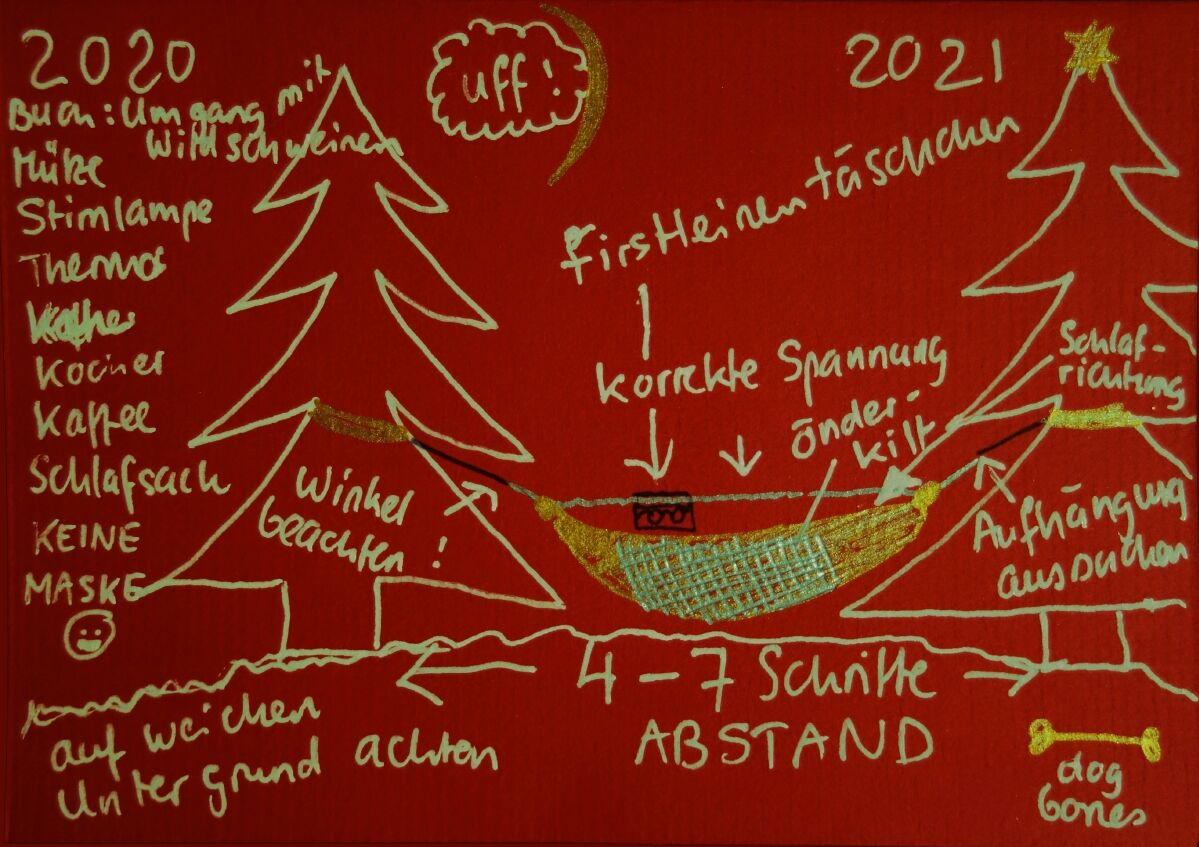 2020
Buch: Umgang mit
Wildschweinen
Mütze
Stirnlampe
Thermos
Kocher
Kaffee
Schlafsack
KEINE
MASKE
uff!
2021
firstleinentäschchen
korrekte Spannung
önder-
kilt
Schlaf-
richtung
Winkel
beachten!
Aufhängung
aussuchen
4-7 Schritte
ABSTAND
auf weichen
Untergrund achten
dog
bones